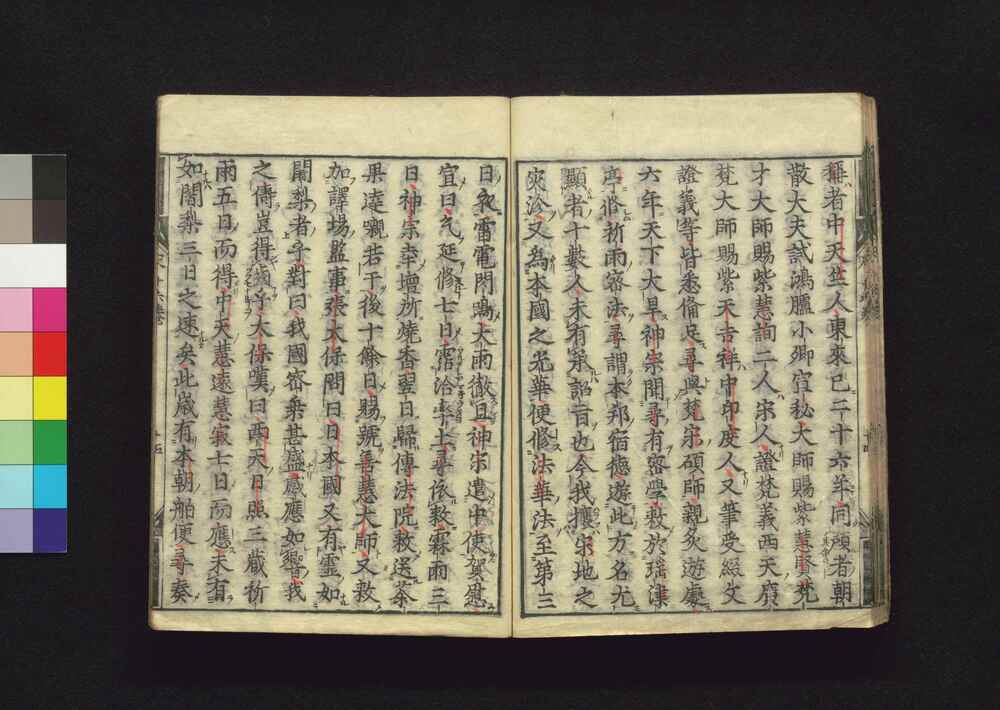 稱者中天竺人東來已二十六年同顧者朝
散大夫試鴻臚小卿宣秘大師賜紫慧賢梵
才大師賜紫慧詢二人宋人證梵義西天廣
梵大師賜紫天吉祥中印度人又筆受綴文
證義等皆悉備足尋與梵宋碩師親炙遊處
六年天下大旱神宗聞尋有密學敕於瑤津
亭修祈雨密法尋謂本邦宿德遊此方名尤
顯者十數人未有承詔旨也今我攘宋地之
災沴又為本國之光華便修法華法至第三
日夜雷電閃鳴大雨徹旦神宗遣中使賀慰
宣曰乞延修七日霑洽率土尋依敕霖雨三
日神宗幸壇所燒香翌日歸傳法院敕送茶
果遠嚫若干後十餘日賜號善慧大師又敕
加譯場監事張太保問曰日本國又有靈如
闍梨者乎對曰我國密乘甚盛感應如響我
之儔豈得齒乎太保嘆曰西天日照三歲祈
雨五日而得中天慧遠慧寂七日而應未有
如闍梨三日之速矣此歲有本朝舶便尋奏